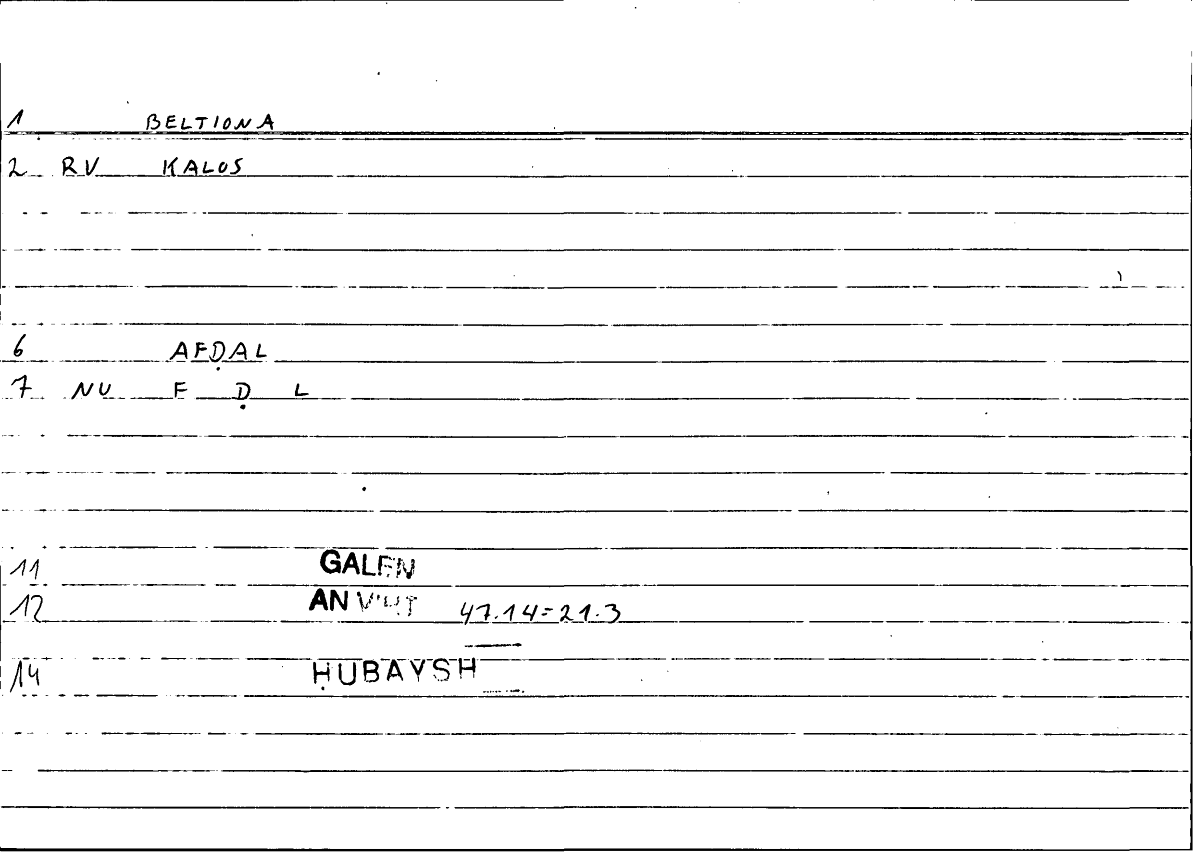 1 BELTIONA
2 RV KALOS
6 AFḌAL
7 NU F Ḍ L
11 GALEN
12 AN VIRT 47.14=21.3
14 ḤUBAYSH